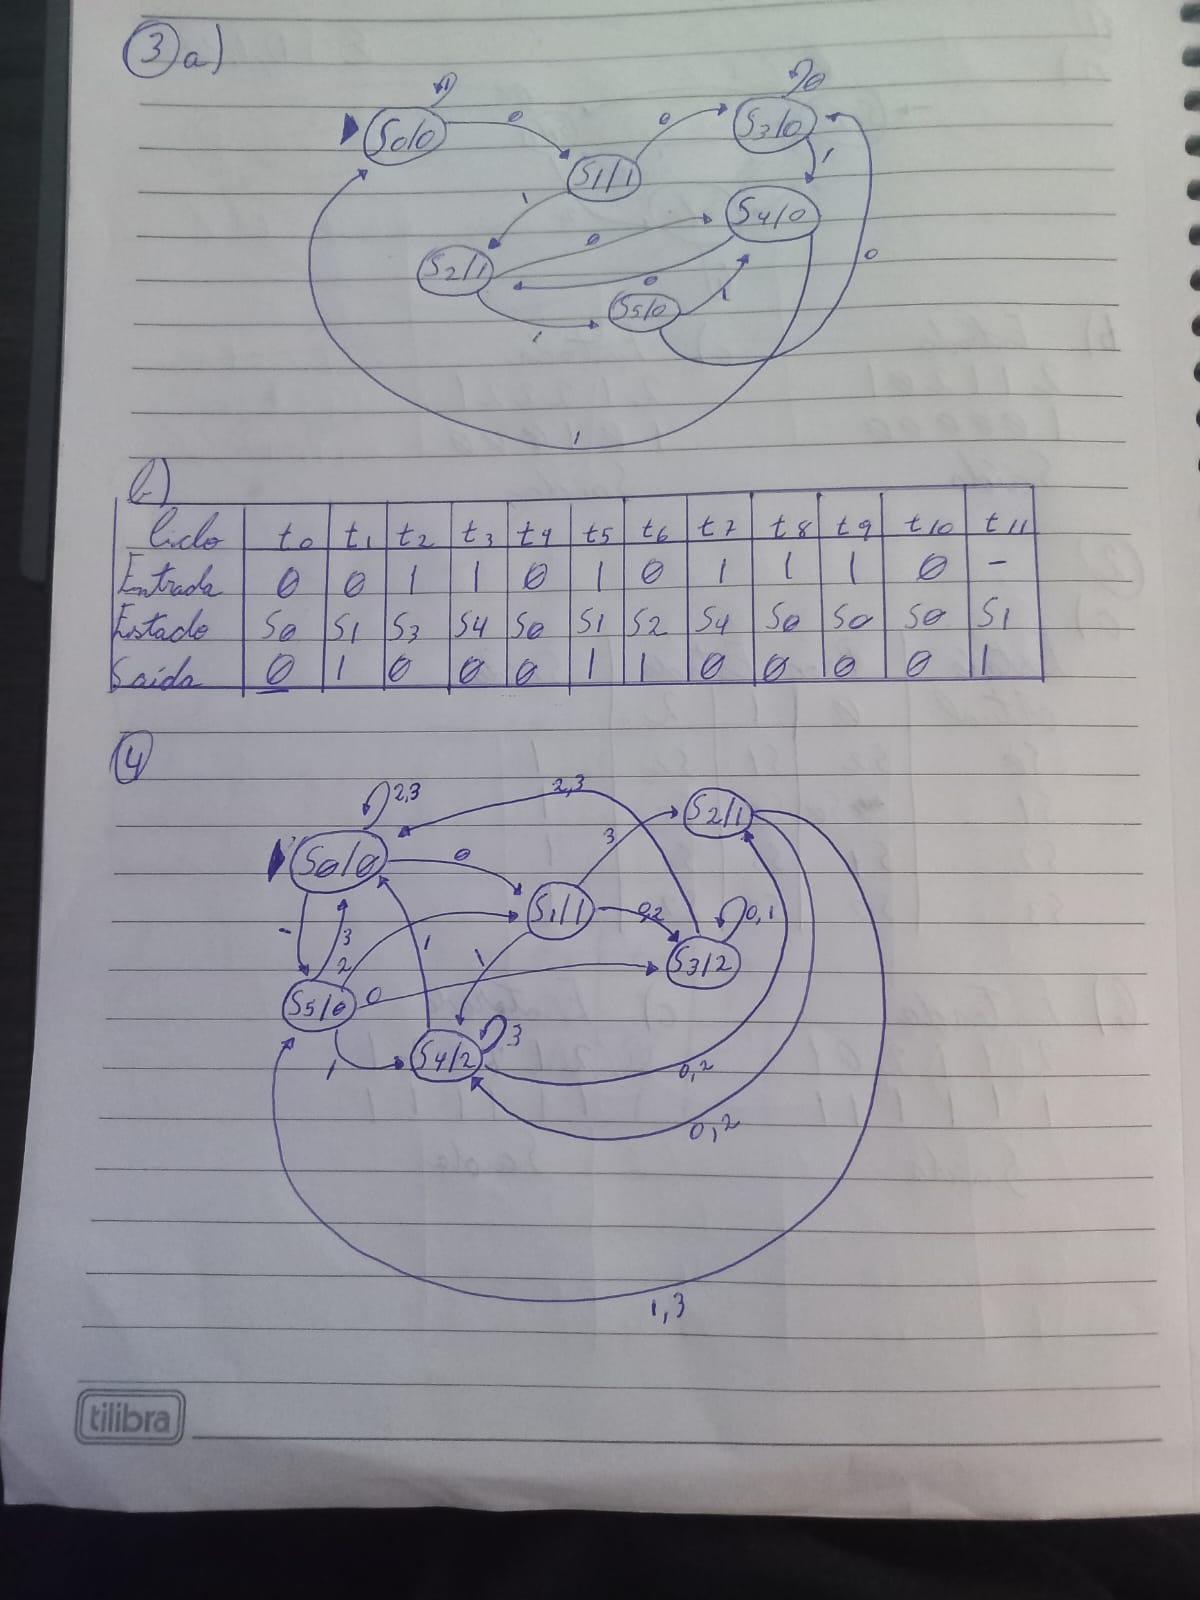 3 a)
1
0
S0/0
0
0
S3/0
S1/1
1
1
S4/0
0
S2/1
0
0
S5/0
1
1
1
b)
Ciclo t0 t1 t2 t3 t4 t5 t6 t7 t8 t9 t10 t11
Entrada 0 0 1 1 0 1 0 1 1 1 0 -
Estado S0 S1 S3 S4 S0 S1 S2 S4 S0 S0 S0 S1
Saída 0 1 0 0 0 1 1 0 0 0 0 1
4
2,3
2,3
S2/1
3
S0/0
0
S1/1
0,2
0,1
1
3
1
S3/2
2
0
S5/0
3
S4/2
1
0,2
0,2
1,3
tilibra